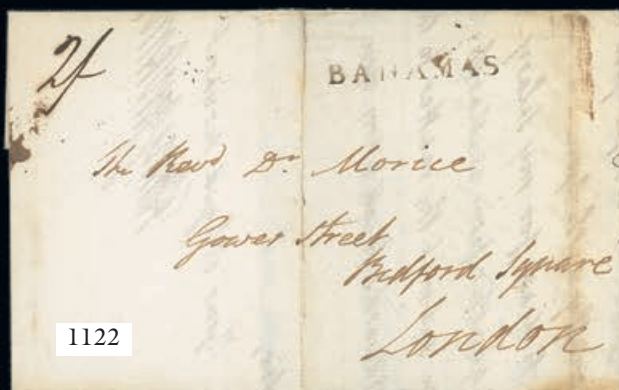 2/
BAHAMAS
The Revd Dr Morice
Gower Street
Bedford Square
London
1122